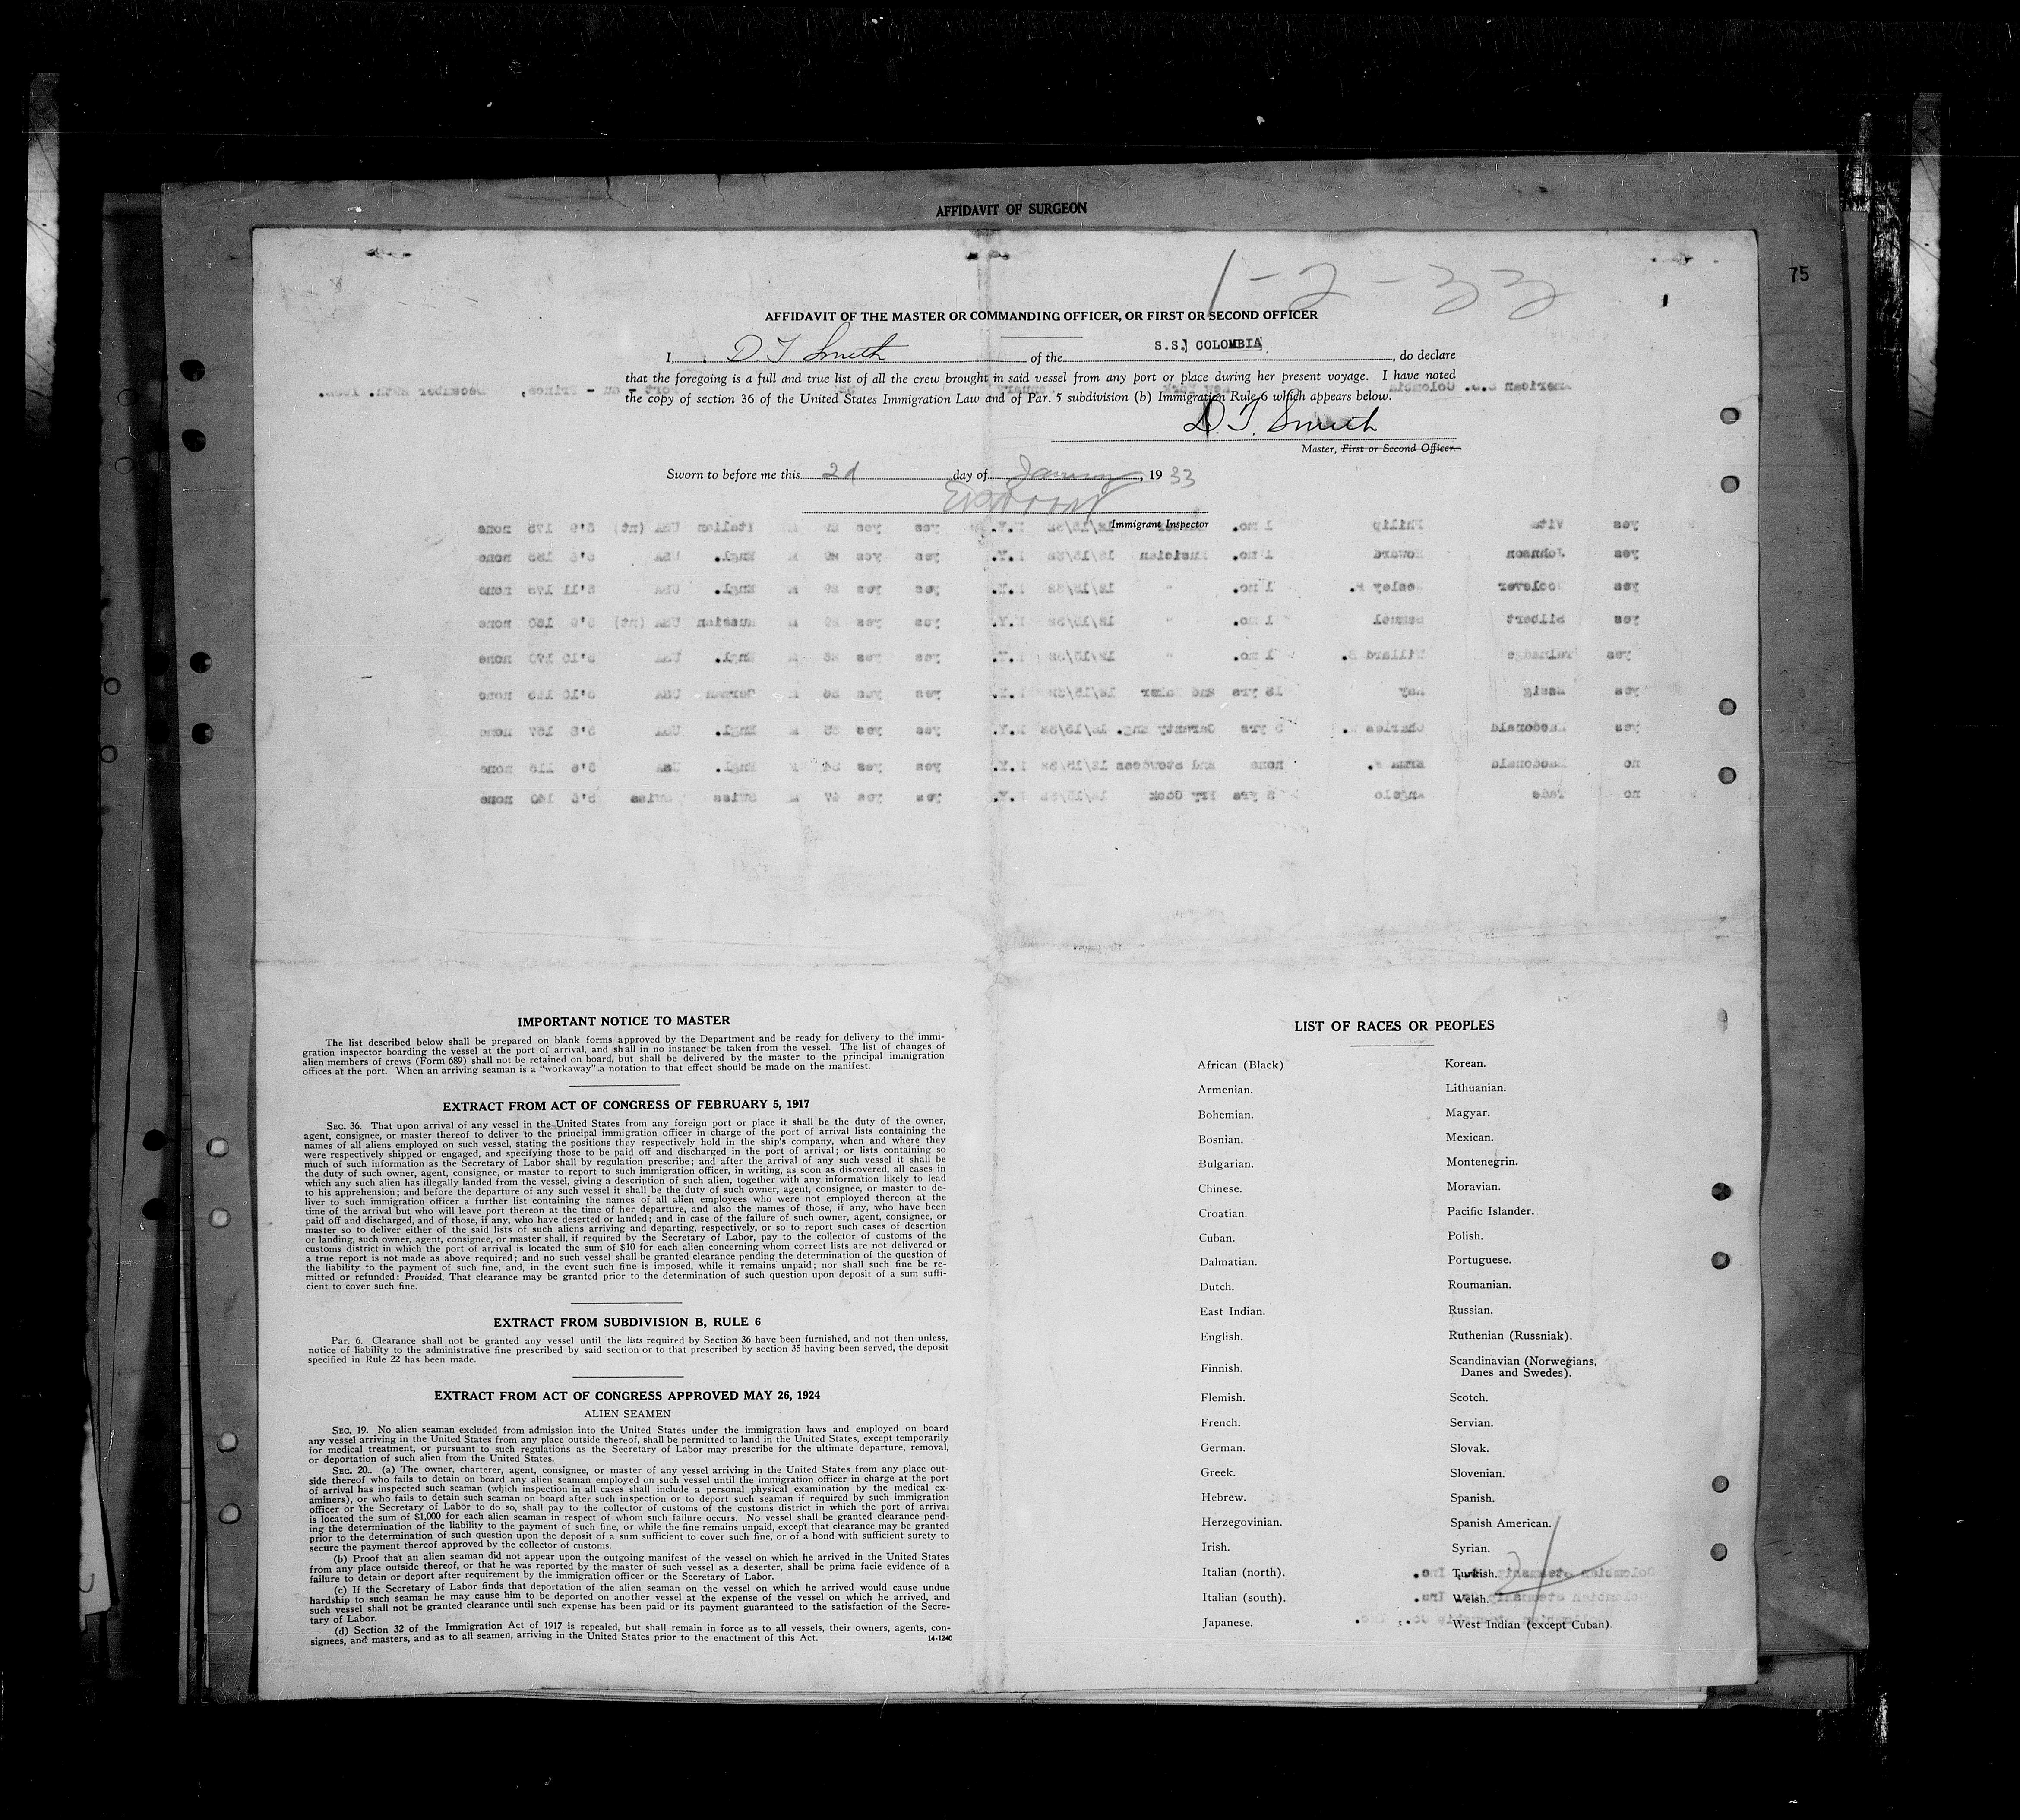 AFFIDAVIT OF SURGEON
75
1-2-33
AFFIDAVIT OF THE MASTER OR COMMANDING OFFICER, OR FIRST OR SECOND OFFICER
I, D. T. Smith of the S.S. COLOMBIA, do declare
that the foregoing is a full and true list of all the crew brought in said vessel from any port or place during her present voyage. I have noted
the copy of section 36 of the United States Immigration Law and of Par. 5 subdivision (b) Immigration Rule 6 which appears below.
D. T. Smith
Master, First or Second Officer
Sworn to before me this 2d day of January, 1933
Immigrant Inspector
IMPORTANT NOTICE TO MASTER
The list described below shall be prepared on blank forms approved by the Department and be ready for delivery to the immi-
gration inspector boarding the vessel at the port of arrival, and shall in no instance be taken from the vessel. The list of changes of
alien members of crews (Form 689) shall not be retained on board, but shall be delivered by the master to the principal immigration
offices at the port. When an arriving seaman is a "workaway" a notation to that effect should be made on the manifest.
EXTRACT FROM ACT OF CONGRESS OF FEBRUARY 5, 1917
SEC. 36. That upon arrival of any vessel in the United States from any foreign port or place it shall be the duty of the owner,
agent, consignee, or master thereof to deliver to the principal immigration officer in charge of the port of arrival lists containing the
names of all aliens employed on such vessel, stating the positions they respectively hold in the ship's company, when and where they
were respectively shipped or engaged, and specifying those to be paid off and discharged in the port of arrival; or lists containing so
much of such information as the Secretary of Labor shall by regulation prescribe; and after the arrival of any such vessel it shall be
the duty of such owner, agent, consignee, or master to report to such immigration officer, in writing, as soon as discovered, all cases in
which any such alien has illegally landed from the vessel, giving a description of such alien, together with any information likely to lead
to his apprehension; and before the departure of any such vessel it shall be the duty of such owner, agent, consignee, or master to de-
liver to such immigration officer a further list containing the names of all alien employees who were not employed thereon at the
time of the arrival but who will leave port thereon at the time of her departure, and also the names of those, if any, who have been
paid off and discharged, and of those, if any, who have deserted or landed; and in case of the failure of such owner, agent, consignee, or
master so to deliver either of the said lists of such aliens arriving and departing, respectively, or so to report such cases of desertion
or landing, such owner, agent, consignee, or master shall, if required by the Secretary of Labor, pay to the collector of customs of the
customs district in which the port of arrival is located the sum of $10 for each alien concerning whom correct lists are not delivered or
a true report is not made as above required; and no such vessel shall be granted clearance pending the determination of the question of
the liability to the payment of such fine, and, in the event such fine is imposed, while it remains unpaid; nor shall such fine be re-
mitted or refunded: Provided, That clearance may be granted prior to the determination of such question upon deposit of a sum suffi-
cient to cover such fine.
EXTRACT FROM SUBDIVISION B, RULE 6
Par. 6. Clearance shall not be granted any vessel until the lists required by Section 36 have been furnished, and not then unless,
notice of liability to the administrative fine prescribed by said section or to that prescribed by section 35 having been served, the deposit
specified in Rule 22 has been made.
EXTRACT FROM ACT OF CONGRESS APPROVED MAY 26, 1924
ALIEN SEAMEN
SEC. 19. No alien seaman excluded from admission into the United States under the immigration laws and employed on board
any vessel arriving in the United States from any place outside thereof, shall be permitted to land in the United States, except temporarily
for medical treatment, or pursuant to such regulations as the Secretary of Labor may prescribe for the ultimate departure, removal,
or deportation of such alien from the United States.
SEC. 20. (a) The owner, charterer, agent, consignee, or master of any vessel arriving in the United States from any place out-
side thereof who fails to detain on board any alien seaman employed on such vessel until the immigration officer in charge at the port
of arrival has inspected such seaman (which inspection in all cases shall include a personal physical examination by the medical ex-
aminers), or who fails to detain such seaman on board after such inspection or to deport such seaman if required by such immigration
officer or the Secretary of Labor to do so, shall pay to the collector of customs of the customs district in which the port of arrival
is located the sum of $1,000 for each alien seaman in respect of whom such failure occurs. No vessel shall be granted clearance pend-
ing the determination of the liability to the payment of such fine, or while the fine remains unpaid, except that clearance may be granted
prior to the determination of such question upon the deposit of a sum sufficient to cover such fine, or of a bond with sufficient surety to
secure the payment thereof approved by the collector of customs.
(b) Proof that an alien seaman did not appear upon the outgoing manifest of the vessel on which he arrived in the United States
from any place outside thereof, or that he was reported by the master of such vessel as a deserter, shall be prima facie evidence of a
failure to detain or deport after requirement by the immigration officer or the Secretary of Labor.
(c) If the Secretary of Labor finds that deportation of the alien seaman on the vessel on which he arrived would cause undue
hardship to such seaman he may cause him to be deported on another vessel at the expense of the vessel on which he arrived, and
such vessel shall not be granted clearance until such expense has been paid or its payment guaranteed to the satisfaction of the Secre-
tary of Labor.
(d) Section 32 of the Immigration Act of 1917 is repealed, but shall remain in force as to all vessels, their owners, agents, con-
signees, and masters, and as to all seamen, arriving in the United States prior to the enactment of this Act.
14-1240
LIST OF RACES OR PEOPLES
African (Black)
Armenian.
Bohemian.
Bosnian.
Bulgarian.
Chinese.
Croatian.
Cuban.
Dalmatian.
Dutch.
East Indian.
English.
Finnish.
Flemish.
French.
German.
Greek.
Hebrew.
Herzegovinian.
Irish.
Italian (north).
Italian (south).
Japanese.
Korean.
Lithuanian.
Magyar.
Mexican.
Montenegrin.
Moravian.
Pacific Islander.
Polish.
Portuguese.
Roumanian.
Russian.
Ruthenian (Russniak).
Scandinavian (Norwegians,
Danes and Swedes).
Scotch.
Servian.
Slovak.
Slovenian.
Spanish.
Spanish American.
Syrian.
Turkish.
Welsh.
West Indian (except Cuban).